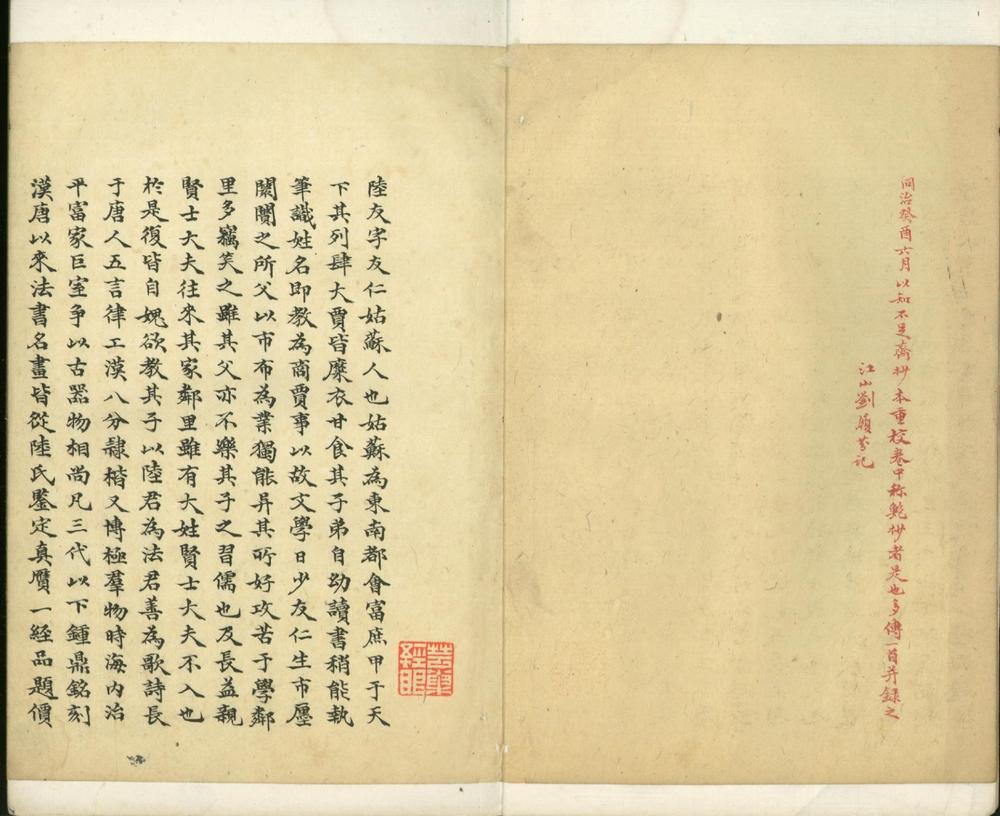 同治癸酉六月以知不足齋抄本重校卷中稱鮑抄者是也多傳一首并錄之
江山劉履芬記
陸友字友仁姑蘇人也姑蘇為東南都會富庶甲于天
下其列肆大賈皆糜衣甘食其子弟自幼讀書稍能執
筆識姓名即教為商賈事以故文學日少友仁生市廛
闤闠之所父以市布為業獨能异其所好攻苦于學鄰
里多竊笑之雖其父亦不樂其子之習儒也及長益親
賢士大夫往來其家鄰里雖有大姓賢士大夫不入也
於是復皆自媿欲教其子以陸君為法君善為歌詩長
于唐人五言律工漢八分隸楷又博極羣物時海内治
平富家巨室爭以古器物相尚凡三代以下鍾鼎銘刻
漢唐以來法書名畫皆從陸氏鑒定真贋一經品題價